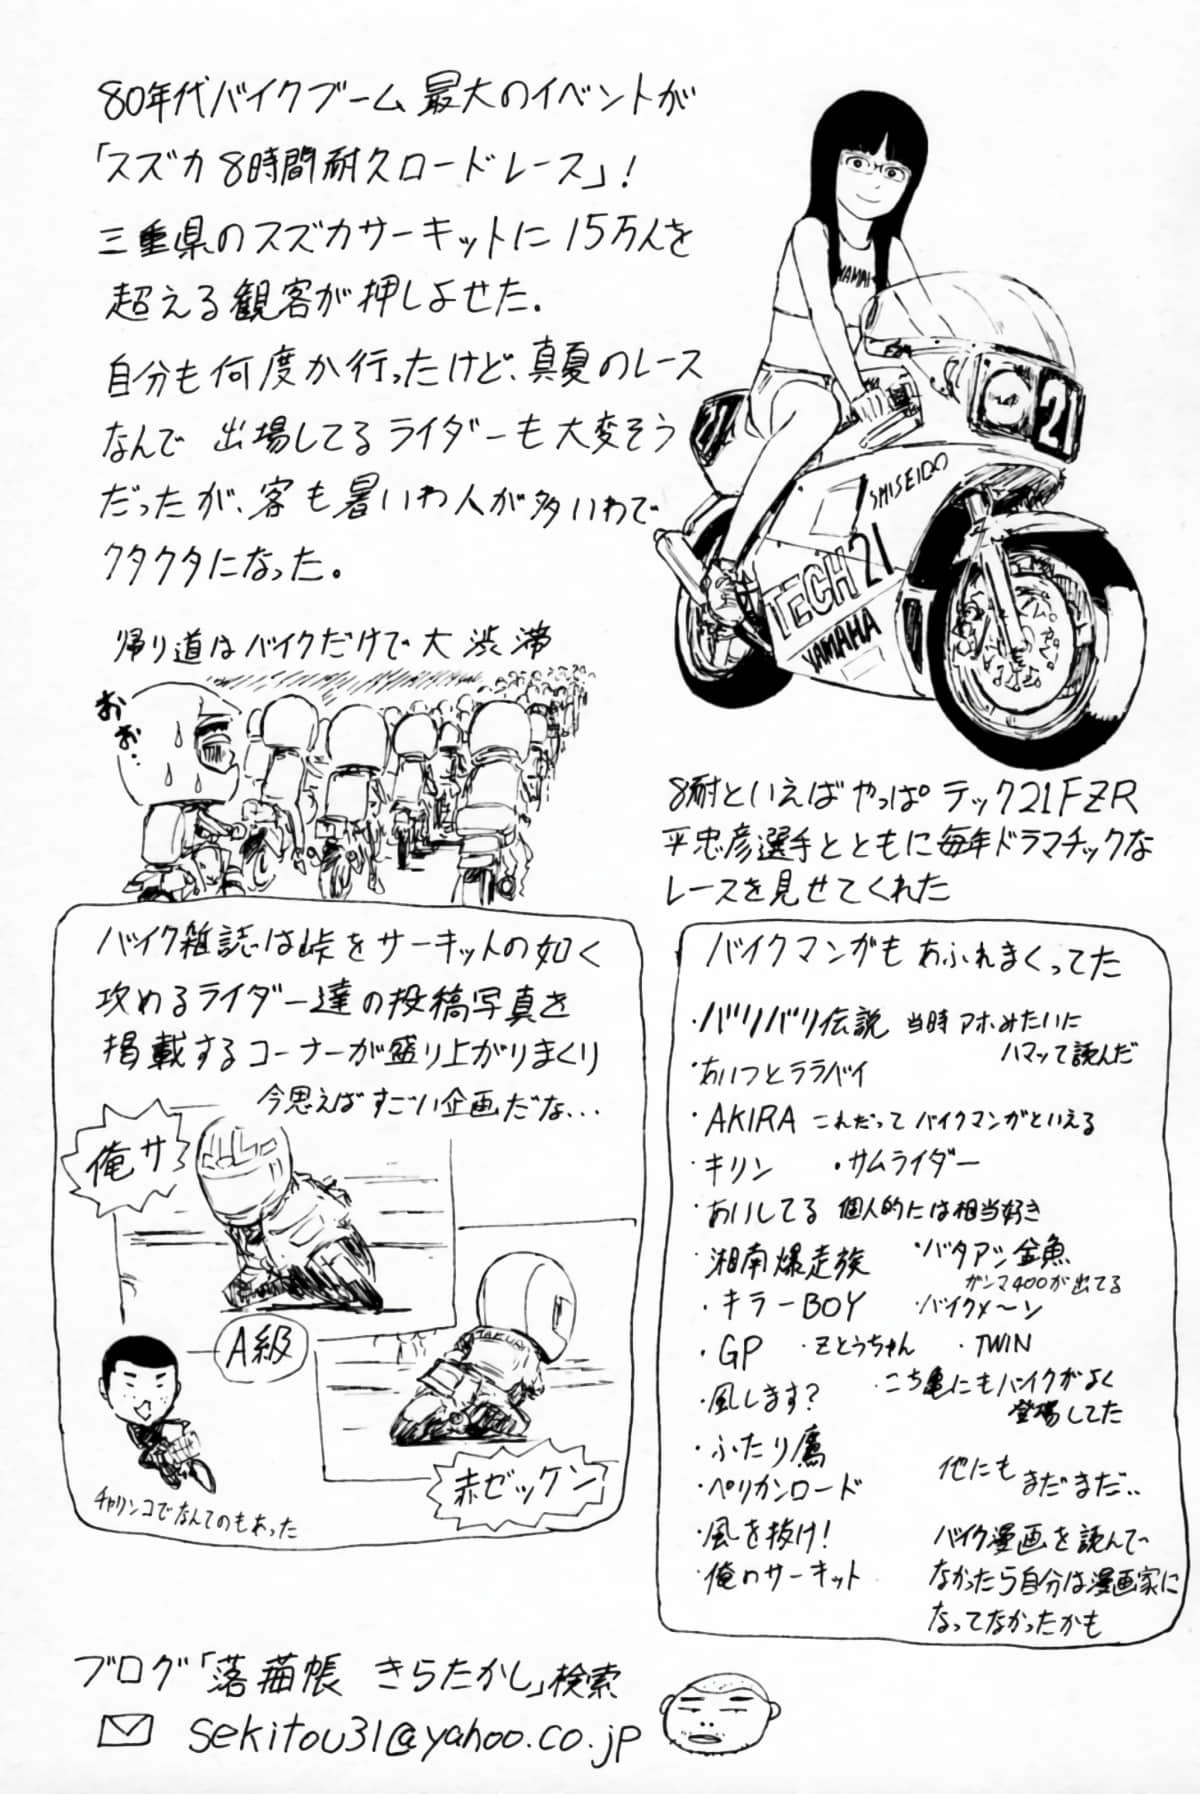 80年代バイクブーム 最大のイベントが
「スズカ8時間耐久ロードレース」!
三重県のスズカサーキットに15万人を
超える観客が押しよせた.
自分も何度か行ったけど、真夏のレース
なんで 出場してるライダーも大変そう
だったが、客も暑いわ人が多いわで
クタクタになった。
帰り道はバイクだけで大渋滞
おぉ..
YAMAHA
21
21
SHISEIDO
TECH21
YAMAHA
8耐といえばやっぱ テック21FZR
平忠彦選手とともに毎年ドラマチックな
レースを見せてくれた
バイク雑誌は峠をサーキットの如く
攻めるライダー達の投稿写真を
掲載するコーナーが盛り上がりまくり
今思えばすごい企画だな...
俺サ
A級
赤ゼッケン
チャリンコでなんてのもあった
バイクマンガも あふれまくってた
・バリバリ伝説 当時アホみたいに
ハマって読んだ
・あいつとララバイ
・AKIRA これだってバイクマンガといえる
・キリン ・サムライダー
・あいしてる 個人的には相当好き
・湘南爆走族 ・バタアシ金魚
ガンマ400が出てる
・キラーBOY ・バイクメ〜ン
・GP ・Zとうちゃん ・TWIN
・風します? ・こち亀にもバイクがよく
登場してた
・ふたり鷹
・ペリカンロード
・風を抜け!
・俺のサーキット
他にも
まだまだ..
バイク漫画を読んで
なかったら自分は漫画家に
なってなかったかも
ブログ「落描帳 きらたかし」検索
sekitou31@yahoo.co.jp